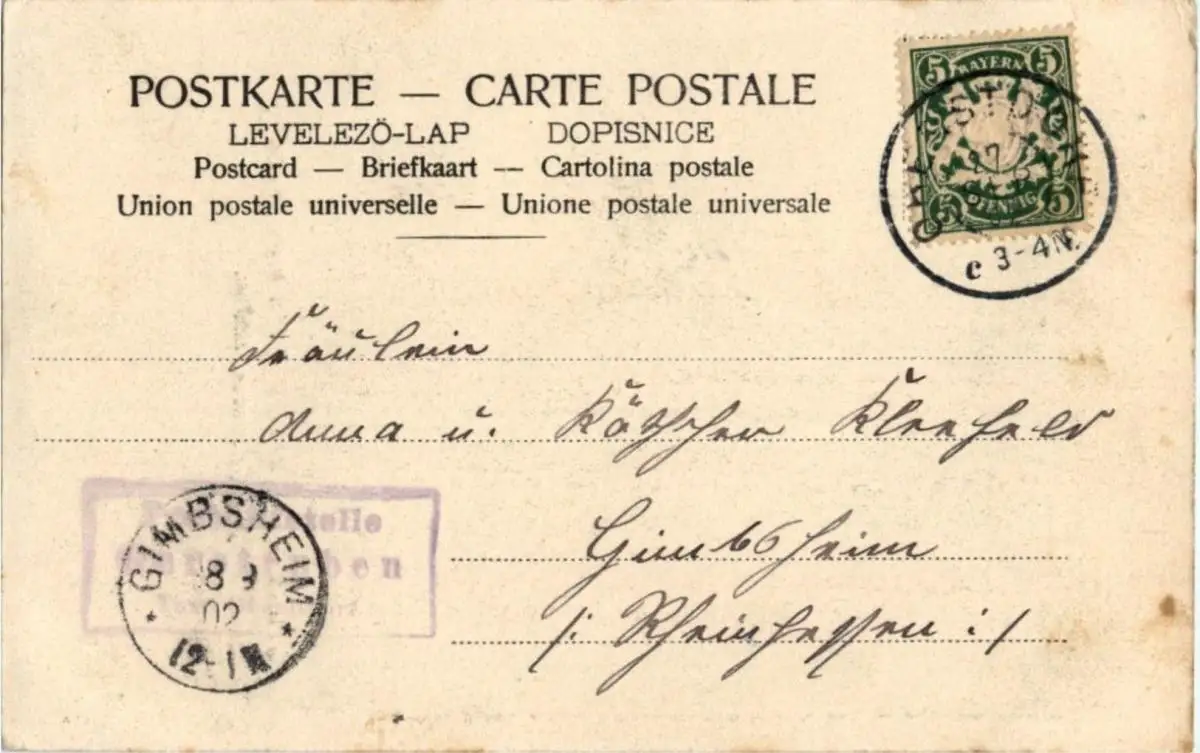 POSTKARTE — CARTE POSTALE
LEVELEZÖ-LAP DOPISNICE
Postcard — Briefkaart — Cartolina postale
Union postale universelle — Unione postale universale
5 BAYERN 5
5 PFENNIG 5
27
c 3-4N.
Fräulein
Anna u. Käthchen Kleefeld
Gimbsheim
/: Rheinhessen :/
GIMBSHEIM
02
12-1N